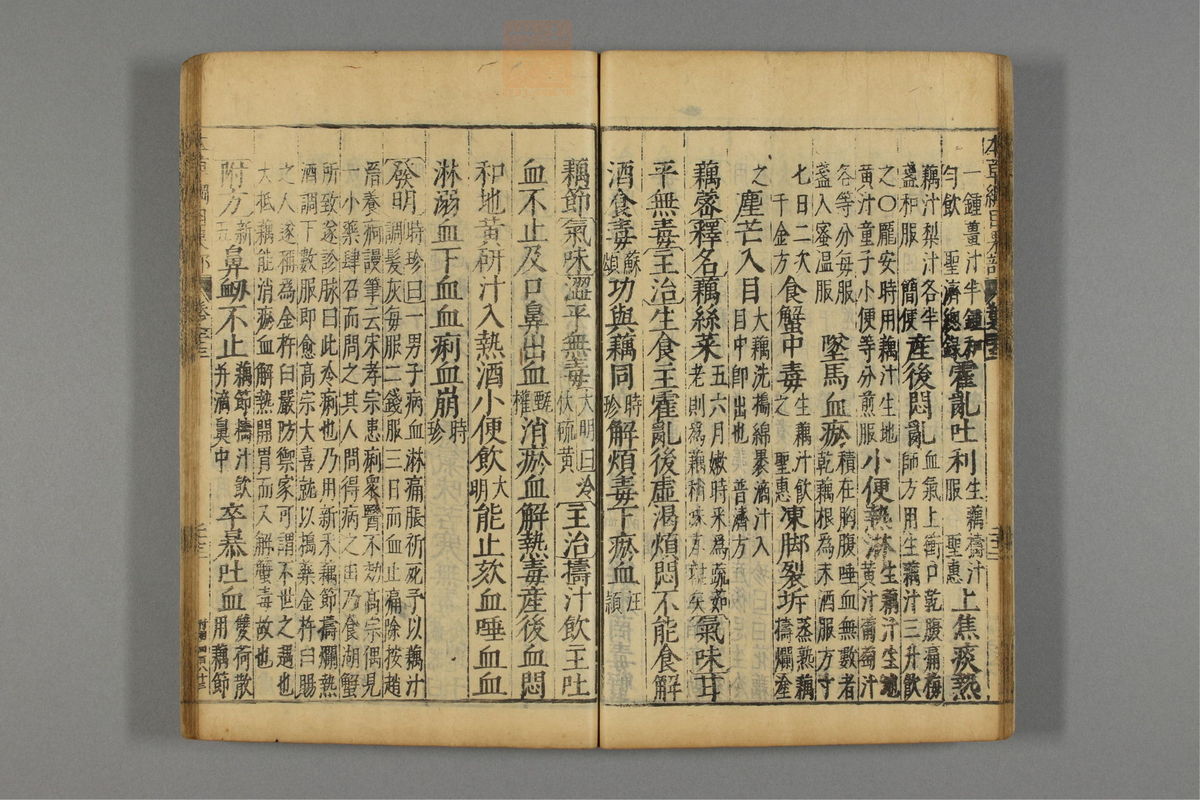 本草綱目果部
一鍾薑汁半鍾和
勻飲 聖濟總錄 霍亂吐利 生藕擣汁服 聖惠 上焦痰熱
藕汁梨汁各半盞和服 簡便 產後悶亂 血氣上衝口乾腹痛梅師方用生藕汁三升飲
之〇龐安時用藕汁生地黃汁童子小便等分煎服 小便熱淋 生藕汁生地黃汁葡萄汁
各等分每服盞入蜜温服 墜馬血瘀 積在胸腹唾血無數者乾藕根為末酒服方寸
七日二次 千金方 食蟹中毒 生藕汁飲之 聖惠 凍脚裂坼 蒸熟藕擣爛塗
之 塵芒入目 大藕洗擣綿裹滴汁入目中即出也 普濟方
藕蔤 釋名 藕絲菜 五六月嫩時采為蔬茹老則為藕稍 氣味 甘
平無毒 主治 生食主霍亂後虛渴煩悶不能食解
酒食毒 蘇頌 功與藕同 時珍 解煩毒下瘀血 汪穎
藕節 氣味 澀平無毒 大明曰冷伏硫黃 主治 擣汁飲主吐
血不止及口鼻出血 甄權 消瘀血解熱毒產後血悶
和地黃研汁入熱酒小便飲 大明 能止欬血唾血血
淋溺血下血血痢血崩 時珍
發明 時珍曰一男子病血淋痛脹祈死予以藕汁
調髮灰每服二錢服三日而血止痛除按趙
溍養疴謾筆云宋孝宗患痢衆醫不効高宗偶見
一小藥肆召而問之其人問得病之由乃食湖蟹
所致遂診脉曰此冷痢也乃用新采藕節擣爛熱
酒調下數服即愈高宗大喜就以擣藥金杵臼賜
之人遂稱為金杵臼嚴防禦家可謂不世之遇也
大抵藕能消瘀血解熱開胃而又解蟹毒故也
附方 新五 鼻衄不止 藕節擣汁飲并滴鼻中 卒暴吐血 雙荷散用藕節